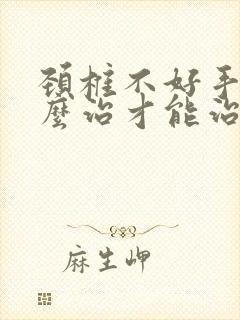 頚椎不好手
麼治才能治
麻生岬